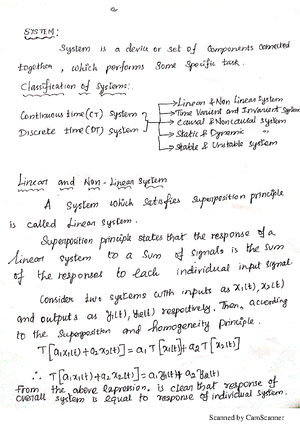 SYSTEM:
System is a device or set of components connected
together, which performs some specific task.
Classification of Systems:
→ Linear & Non Linear System
Continuous time (CT) System → Time Variant and Invariant System
→ Causal & Noncausal System
Discrete time (DT) System → Static & Dynamic "
→ Stable & Unstable system
Linear and Non-Linear System
A System which satisfies Superposition principle
is called Linear System.
Superposition principle states that the response of a
Linear system to a sum of signals is the sum
of the responses to each individual input signal
Consider two systems with inputs as x1(t), x2(t)
and outputs as y1(t), y2(t) respectively. Then, according
to the Superposition and homogeneity principle.
T[a1x1(t)+a2x2(t)] = a1T[x1(t)]+a2T[x2(t)]
∴ T[a1x1(t)+a2x2(t)] = a1y1(t)+a2y2(t)
From the above expression. is clear that response of
overall system is equal to response of individual system.
Scanned by CamScanner